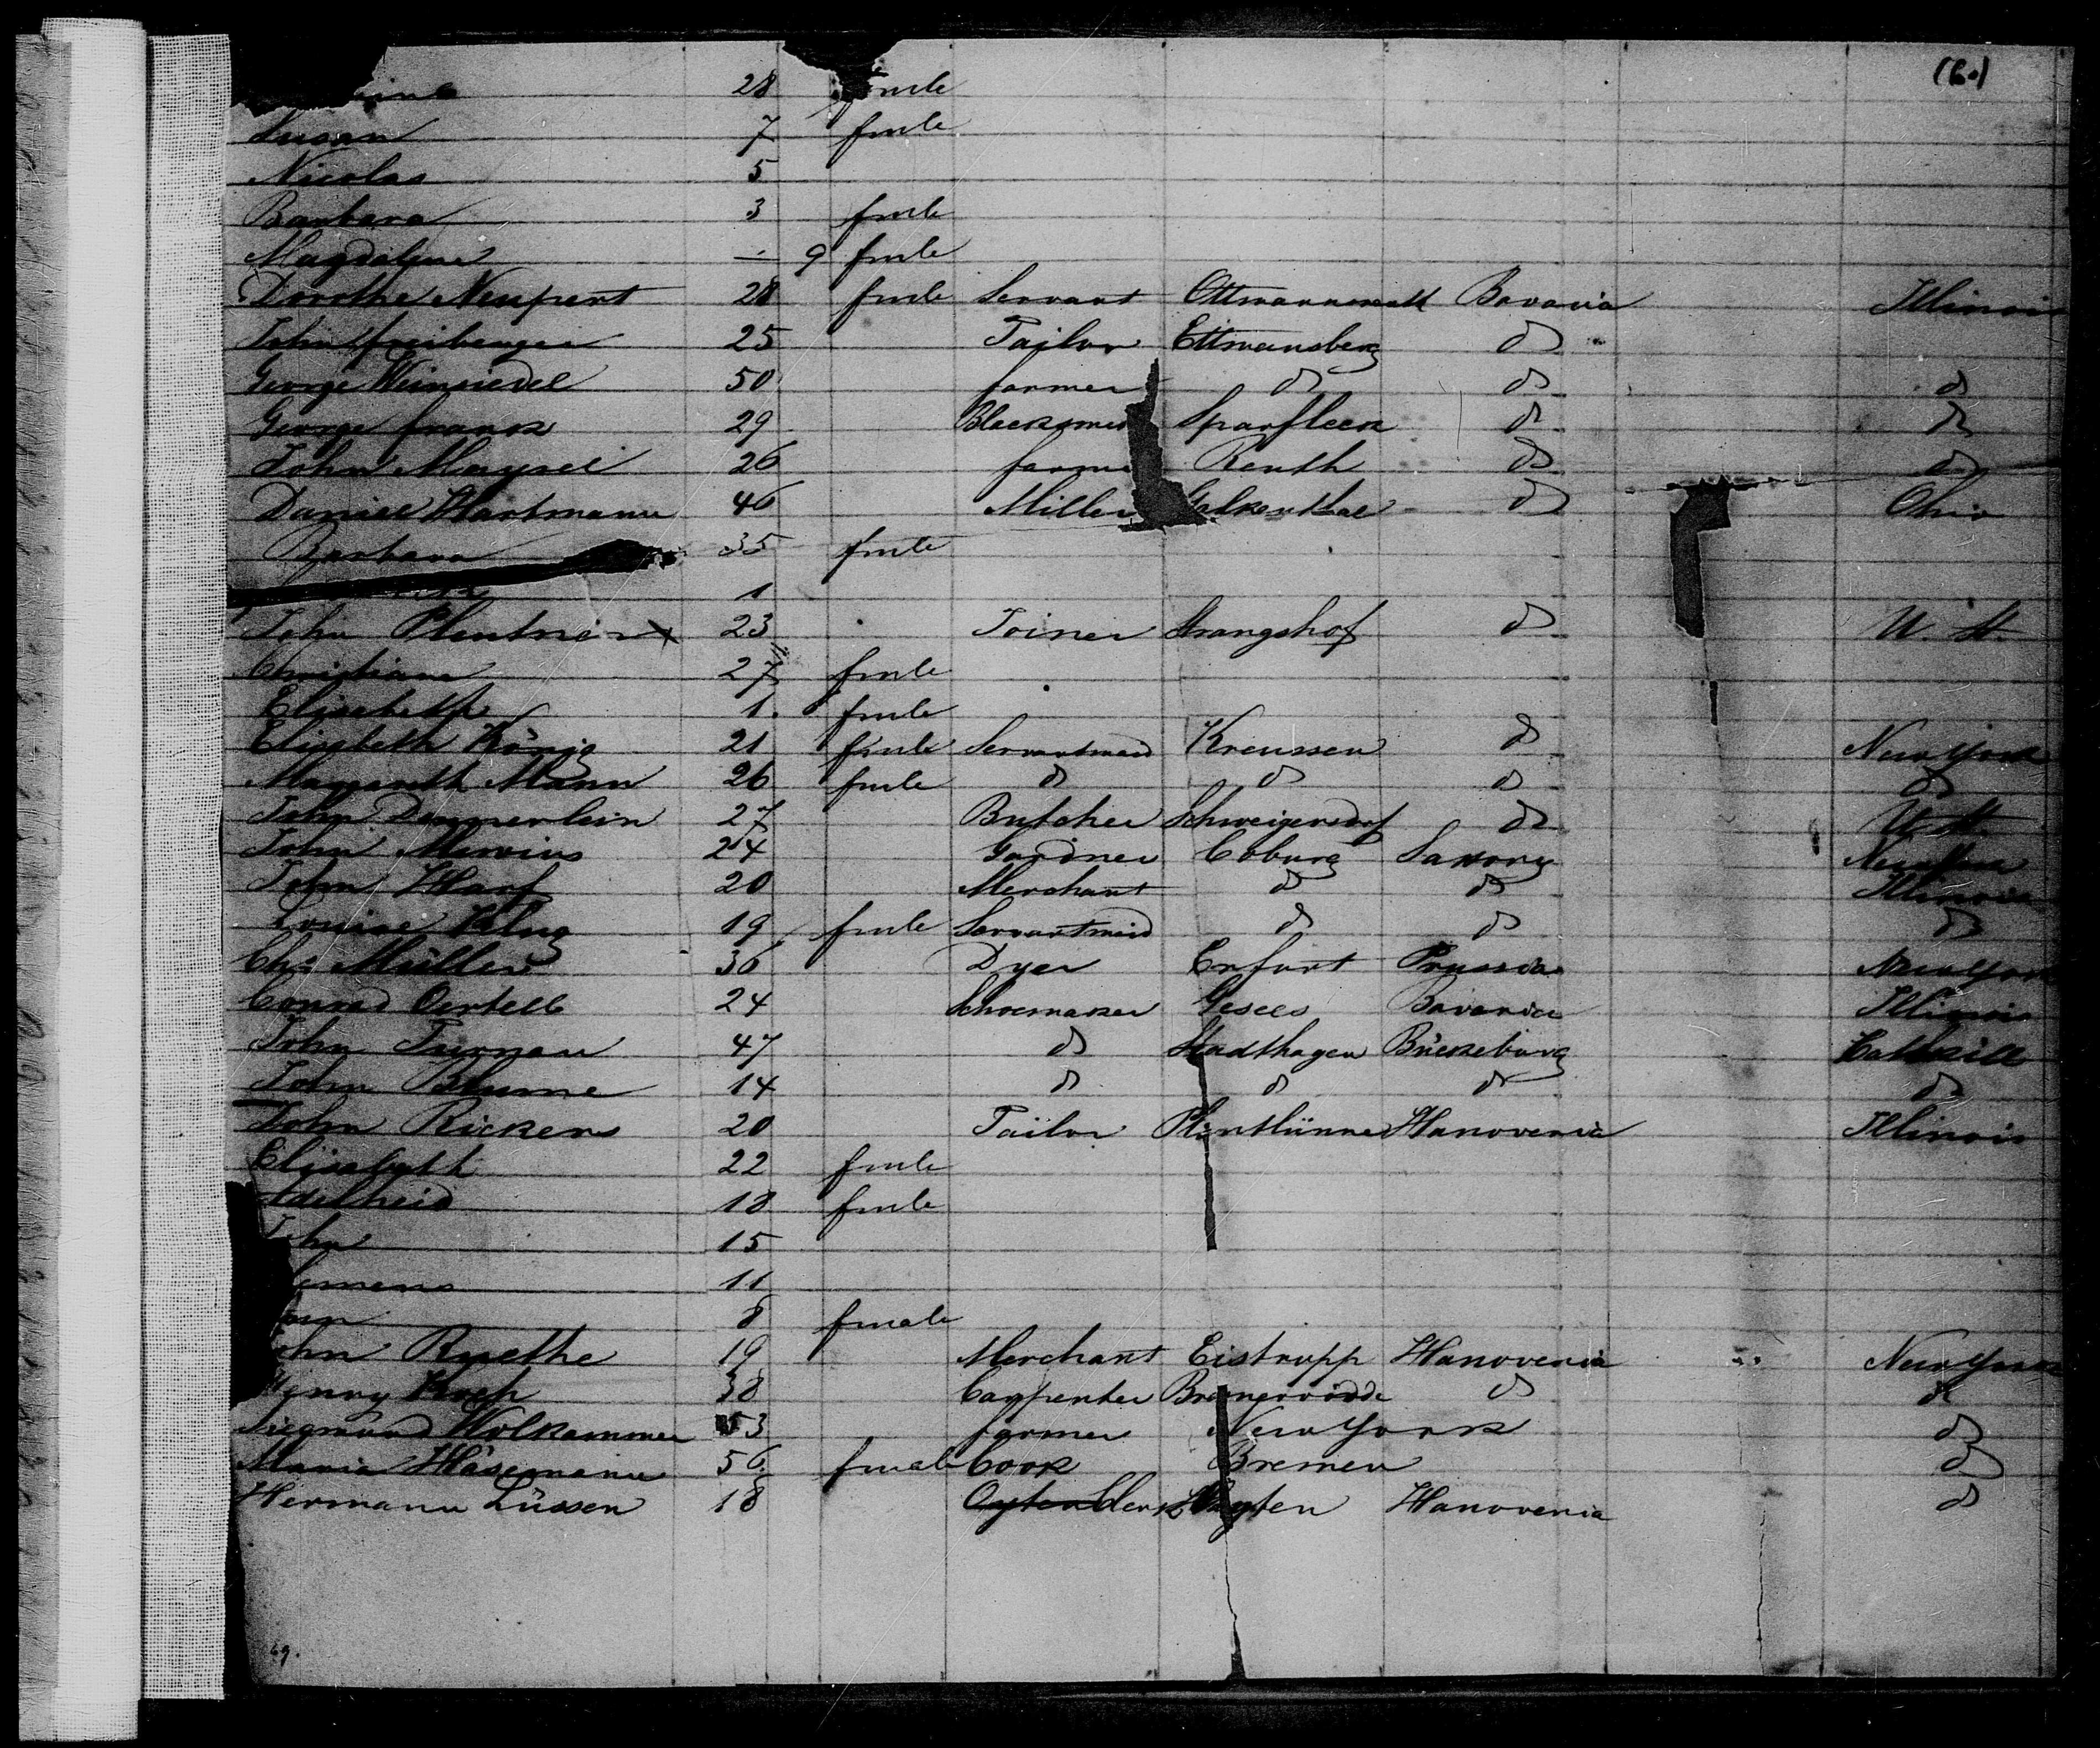 (6.)
28 fmle
Susan 7 fmle
Nicolas 5
Barbara 3 fmle
Magdalene — 9 fmle
Dorothe Neupert 28 fmle Servant Bavaria Illinois
John freiberger 25 Tailor Ettmansberg d
George Weinsiedel 50 farmer d d d
George frank 29 Sparfleck d d
John Maysel 26 Reuth d d
Daniel Hartmann 46 Miller d Ohio
Barbara 35 fmle
1
John Plentner x 23 Joiner Strangshof d U. St
Christiane 27 fmle
Elisabeth 1. fmle
Elisabeth König 21 fmle Servantmaid Kreussen d New York
Margareth Mann 26 fmle d d d d
John Demmerlein 27 Butcher Schweigersdorf d U. St.
John 24 Gardner Coburg Saxony New York
John Harf 20 Merchant d d Illinois
Louise Klug 19 fmle Servantmaid d d d
Chs Müller 36 Dyer Erfurt Prussia New York
Conrad Oertell 24 Schoemaker Gesees Bavaria Illinois
John Turnau 47 d Stadthagen Bückeburg Catskill
John Blume 14 d d d d
John Rickers 20 Tailor Hanoveria Illinois
Elisabeth 22 fmle
Adelheid 18 fmle
John 15
11
8 fmale
John Ruethe 19 Merchant Eistrupp Hanoveria New York
Henry Koch 38 Carpenter d d
Siegmund Wolkammer 53 farmer New York d
Maria Häsemann 56 fmale Cook Bremen d
Hermann Lüssen 18 Oyten Clerk Oyten Hanoveria d
69.